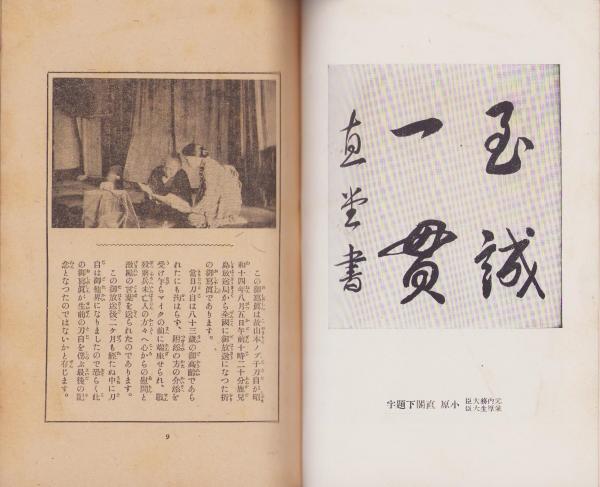 至誠
一貫
直堂書
元内務大臣
兼厚生大臣
小原 直閣下題字
この御寫眞は故山本ノブ子刀自が昭
和十四年八月五日午前十時二十分鹿兒
島放送局から全國に御放送になつた折
の御寫眞であります。
當日刀自は八十三歳の御高齡であら
れたにも拘はらず、附添の方の介添を
受け乍らマイクの前に端座せられ、戰
歿將兵未亡人の方々へ心からの慰問と
激勵の言葉を送られたのであります。
この御放送後二ケ月も經たぬ中に刀
自は御他界になりましたので恐らく此
の御寫眞が生前の刀自を偲ぶ最後の記
念となつたのではないかと存じます。
9